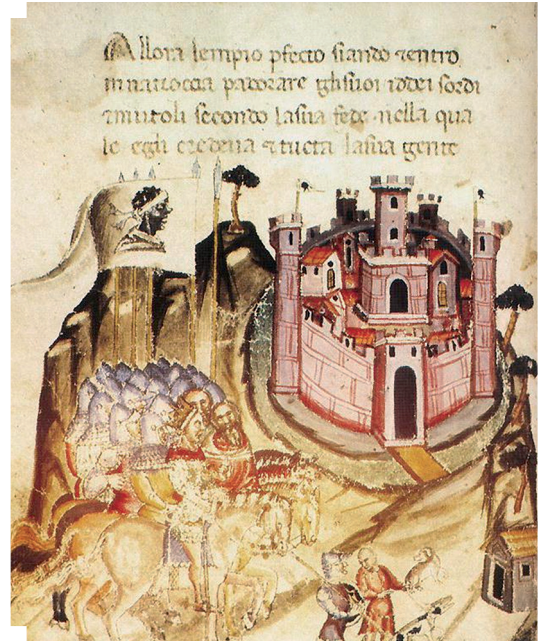 Allora lempio pfecto siando entro
padorare glisuoi iddei sordi
⁊mutoli secondo lasua fede · nella qua
le egli credeua ⁊ tucta lasua gente